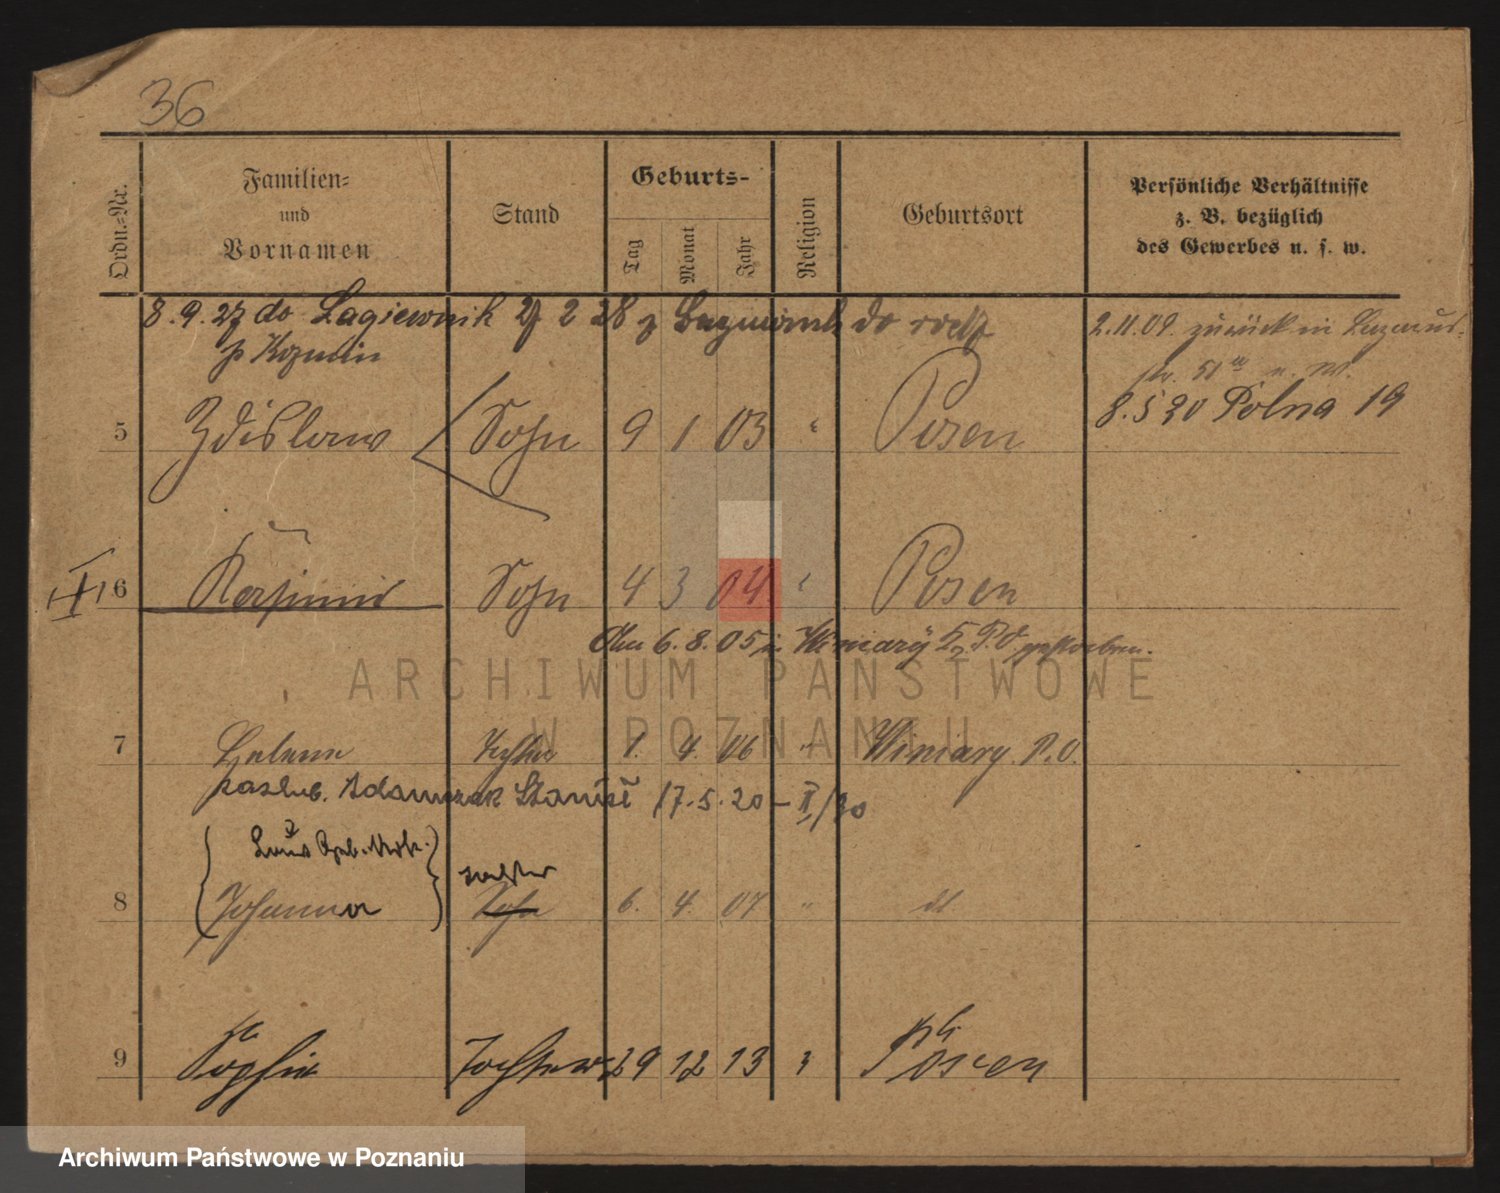 36
Ordn.-Nr.
Familien-
und
Vornamen
Stand
Geburts-
Tag
Monat
Jahr
Religion
Geburtsort
Persönliche Verhältnisse
z. B. bezüglich
des Gewerbes u. s. w.
8.9.27 do Lagiewnik 27 2 28 z do
p Kozmin
2.11.09. zurück in
str. u.
8.5 20 Polna 19
5 Zdislaw Sohn 9 1 03 " Posen
6 Kasimir Sohn 4 3 04 " Posen
Am 6.8.05 in Winiary P.O gestorben.
7 Helene Tochter 1. 4. 06 " Winiary P.O.
zaslub. Adamczak 17.5.20 – II/20
Geb. Urk.
Tochter
8 Johanna Sohn 6. 4. 07 " dt
9 Sophie Tochter 29 12 13 " Posen
ARCHIWUM PAŃSTWOWE
W POZNANIU
Archiwum Państwowe w Poznaniu